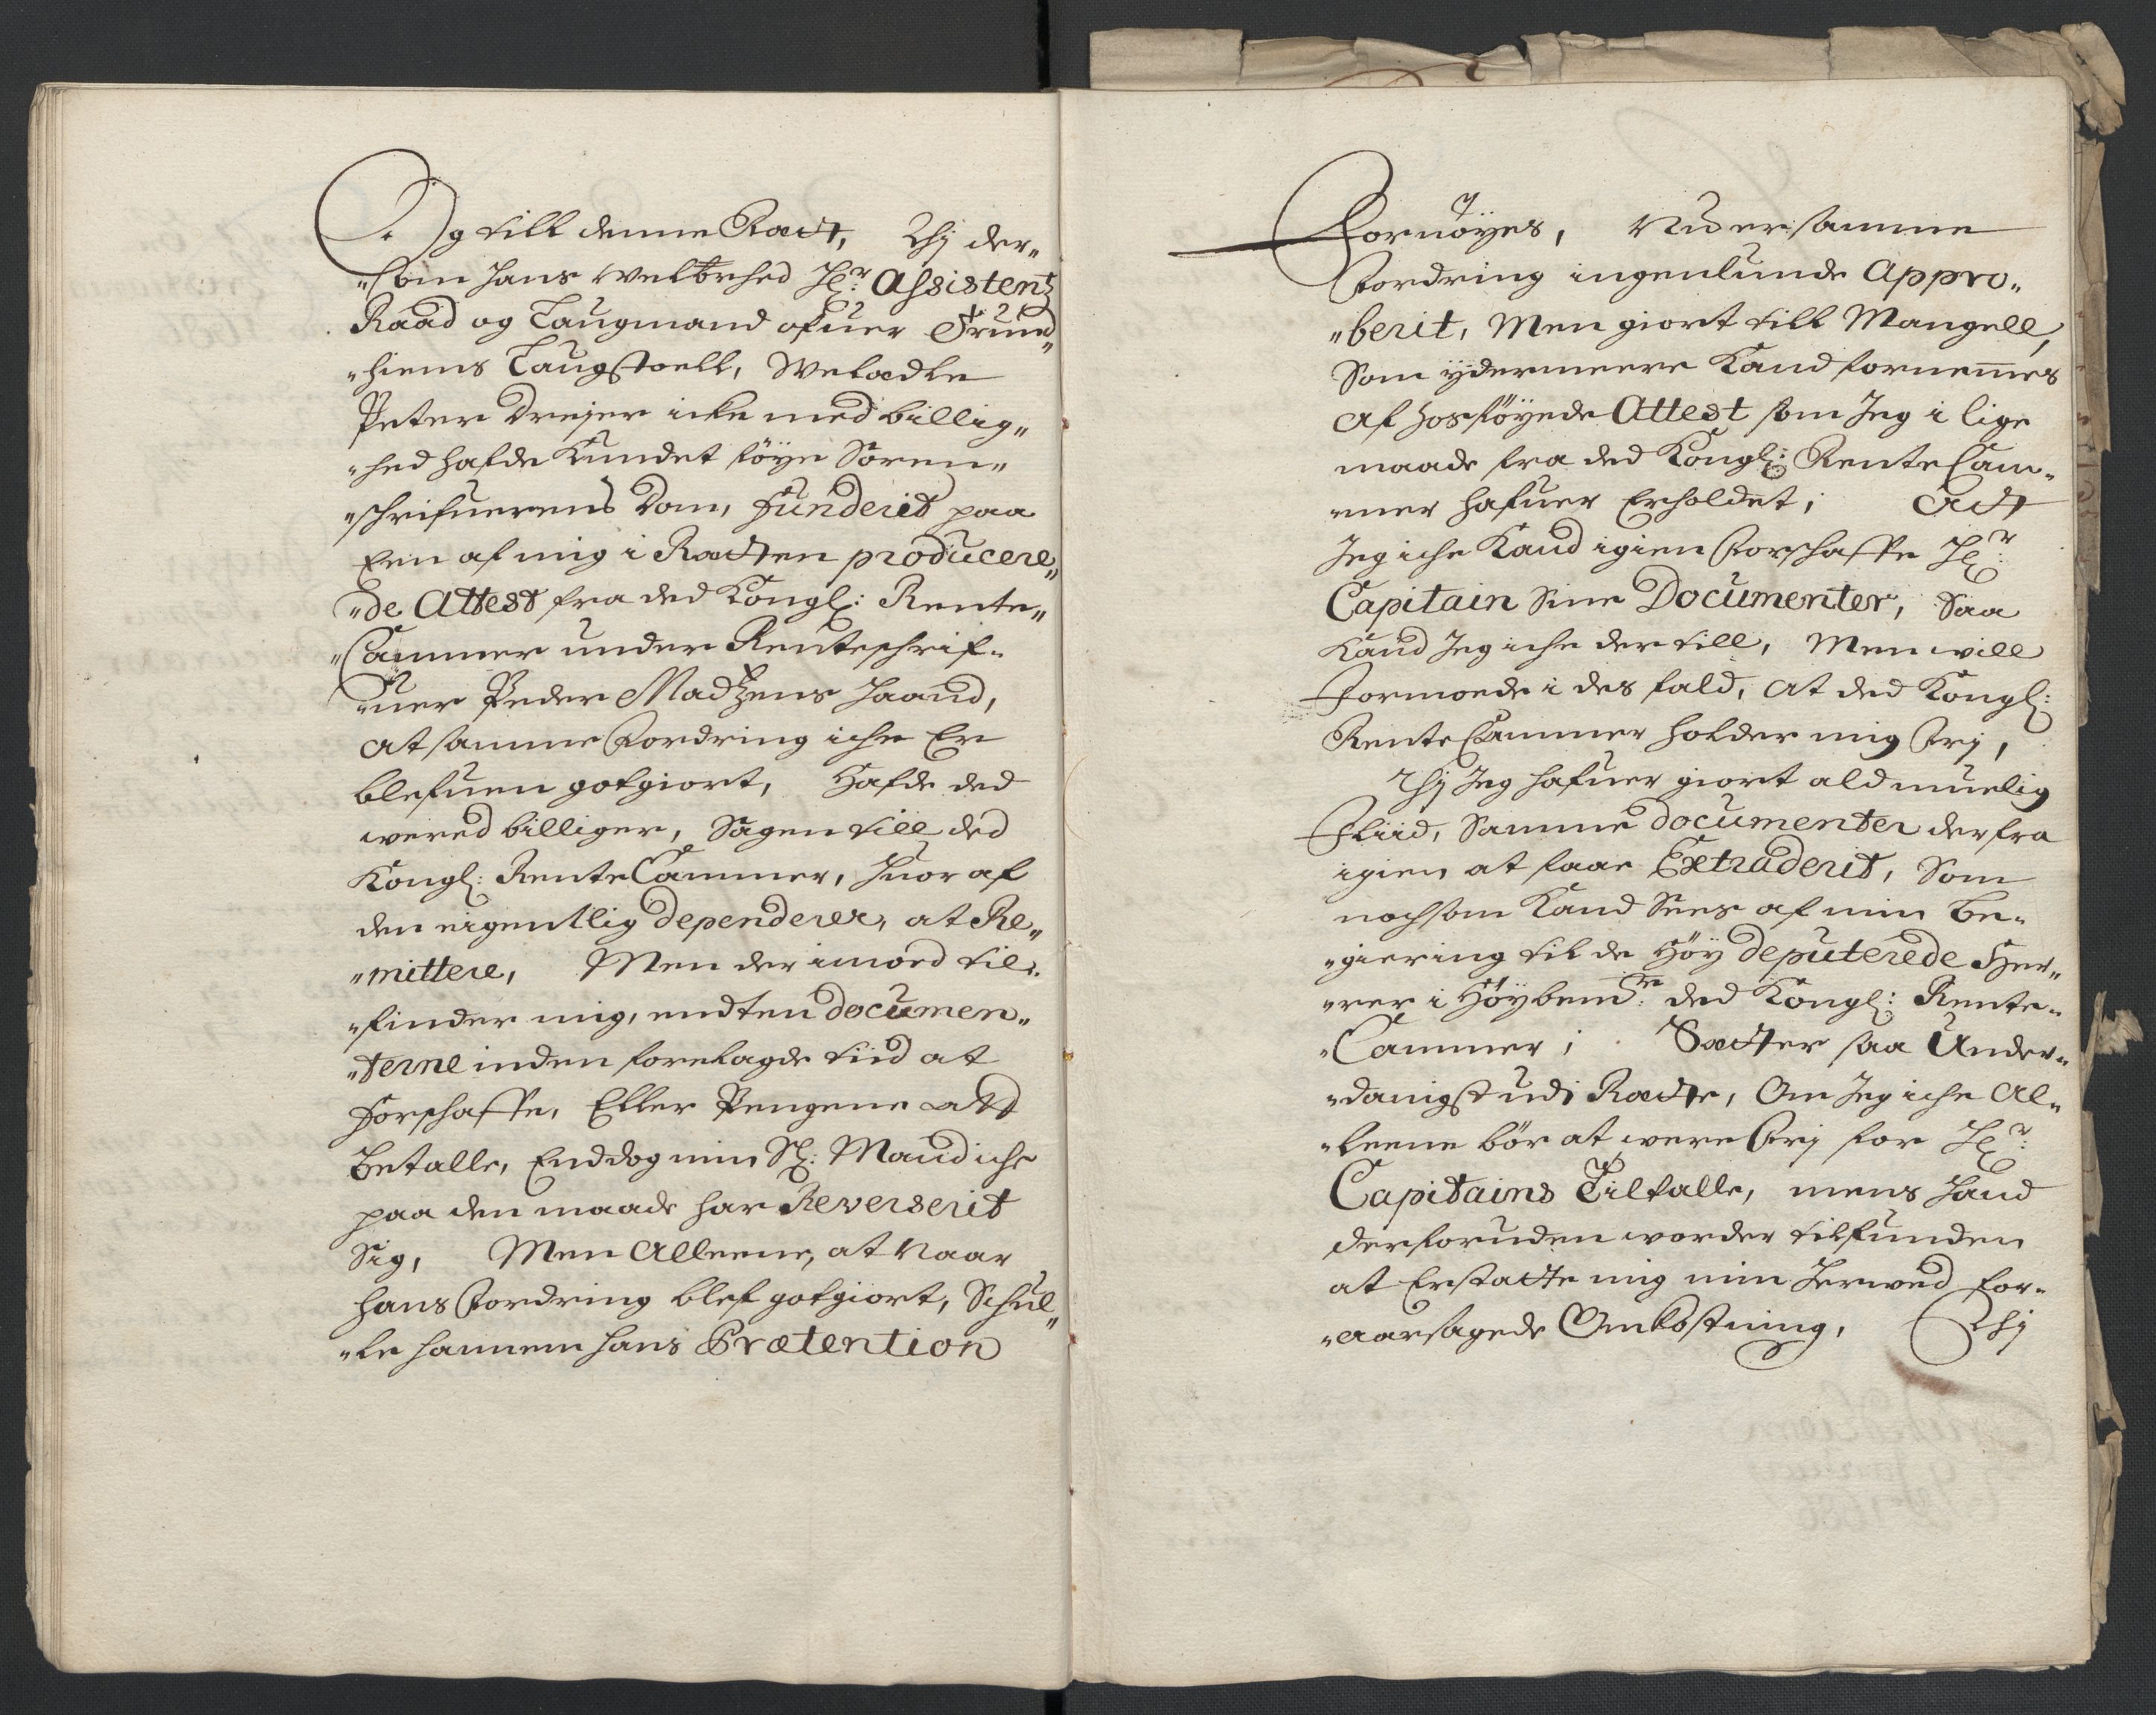 Og till denne Rætt, Thj der„
„som hans Welbrhed Hr: Assistentz
Raad og Laugmand ofuer Trund„
„hiems Laugstoell, Weladle
Peter Drejer icke med billig„
„hed hafde Kundet føye Soren„
„schrifuerens Dom, funderit paa
Een af mig i Rætten producere„
„de Attest fra ded Kongl: Rente„
„Cammer under Renteschrif„
„uer Peder Madtzens Haand,
at samme Fordring iche Er
blefuen gotgiort, Hafde ded
wered billiger, Sagen till ded
Kongl: Rente Cammer, huor af
den eigentlig dependerer, at Re„
„mittere, Men der imod til„
„finder mig, endten documen„
„terne inden forelagde tiid at
forschaffe, Eller Pengene att
betalle, Enddog min Sl: Mand iche
paa den maade har Reverserit
Sig, Men Alleene, at Naar
hans Fordring blef gotgiort, Schul„
„le hannem hans Prætention
Fornøyes, Nu er samme
Fordring ingenlunde Appro„
„berit, Men giort till Mangell,
Som ydermeere Kand fornemmes
af hosføyede Attest som Jeg i lige
maade fra ded Kongl: Rente Cam„
„mer hafuer Erholdet; Att
Jeg iche Kand igien forschaffe Hr:
Capitain Sine Documenter, Saa
Kand Jeg iche der till, Men will
formoede i des fald, at ded Kongl:
Rente Cammer holder mig frj,
Thj Jeg hafuer giort ald muelig
Fliid, Samme documenter der fra
igien at faae Extraderit, Som
nochsom Kand Sees af min Be„
„giering til de Høy deputerede Her„
„rer i Høybemte: ded Kongl: Rente„
„Cammer; Sætter saa Under„
„danigst udj Rætte, Om Jeg iche Al„
„leene bør at were frj for Hr:
Capitains Tiltalle, mens hand
der foruden worder tilfunden
at Erstatte mig min herwed for„
„aarsagede Omkostning, Thj